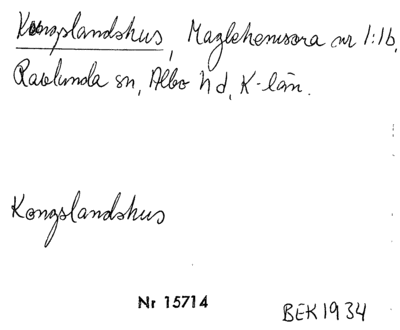 Kongslandshus, Maglehemsora nr 1:16,
Ravlunda sn, Albo hd, K-län.
Kongslandshus
Nr 15714
BEK1934